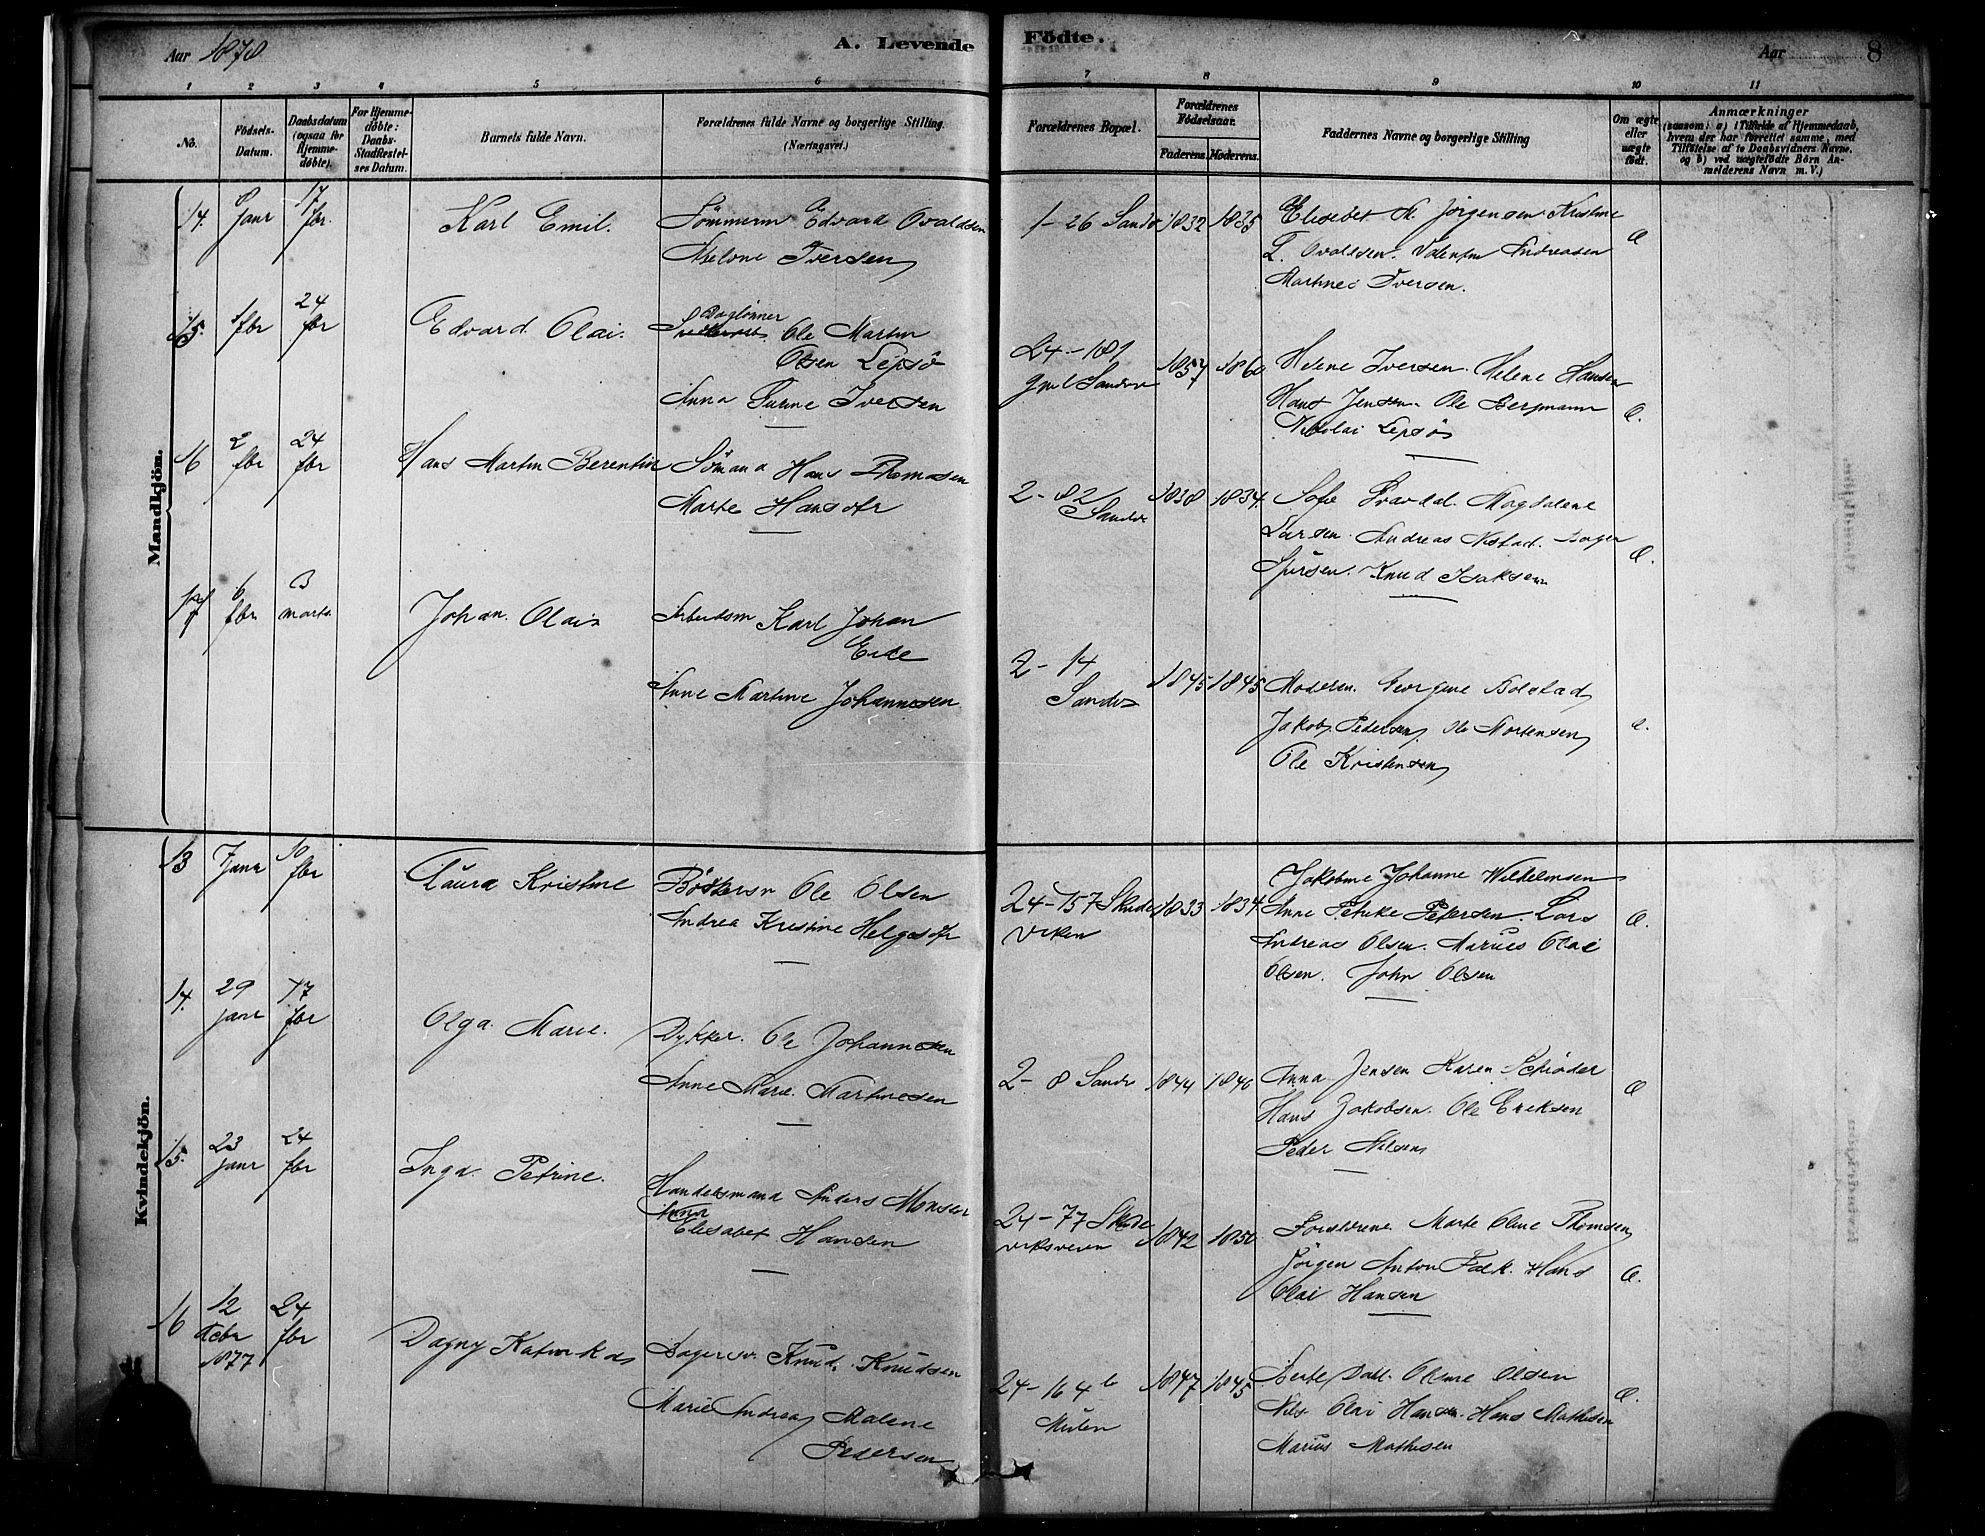 Aar 1878
A. Levende Födte.
Aar 8
1 2 3 4 5 6 7 8 9 10 11
No.
Födsels-
Datum.
Daabsdatum
(ogsaa for
Hjemme-
døbte).
For Hjemme-
døbte:
Daabs-
Stadfæstel-
ses Datum.
Barnets fulde Navn.
Forældrenes fulde Navne og borgerlige Stilling.
(Næringsvei.)
Forældrenes Bopæl.
Forældrenes
Fødselsaar.
Faderens. Moderens.
Faddernes Navne og borgerlige Stilling
Om ægte
eller
uægte
født.
Anmærkninger
(saasom: a) i Tilfælde af Hjemmedaab,
hvem der har forrettet samme, med
Tilføielse af to Daabsvidners Navne,
og b) ved uægtefødte Børn An-
melderens Navn m. V.)
Mandkjön.
14. 8 Janr 17 fbr. Karl Emil. Tömmerm Edvard Ovaldsen
Iversen
1-26 Sandv 1832 1835 Elisebet Jörgensen Kristine
L. Ovaldsen. Valentin Andreasen
Martines Iversen.
15. 1 fbr 24 fbr Edvard Olai. Daglönner
Ole Martin
Olsen Lepsö
Anna Iversen
24-181 1857 1860
Sandv
Helene Iversen. Helene Hansen
Hans Jensen. Ole Bergmann
Nikolai Lepsö
16 2 fbr 24 fbr Hans Martin Berentin Sömand Hans Thomasen
Marte Hansdtr
2-82 1838 1834.
Sandv
Magdalene
Larsen. Andreas
Knud Isaksen
17 6 fbr 3 marts Johan. Olai Arbeidsm Karl Johan
Eide
Anne Martine Johannesen
2-14 1845 1845
Sandv
Moderen. Georgine Bolstad
Jakob Pedersen, Ole Mortensen
Ole Kristensen
Kvindekjön.
13 7 Janr 10 fbr Laura Kristine Ole Olsen
Andrea Kristine Helgesdtr
24-157 Skude 1833 1834
viken
Jakobine Johanne Wilhelmsen
Anne Petrike Petersen. Lars
Andreas Olsen. Marius Olai
Olsen. John Olsen
14. 29 janr 17 fbr Olga. Marie. Dykker. Ole Johannesen
Anne Marie. Martinesen
2-8 Sandv 1844 1846
Anna Jensen Karen Schröder
Hans Jakobsen. Ole Eriksen
Peder Nilsen
15. 23 janr 24 fbr Inga. Petrine. Handelsmand Anders Monsen
Anna
Elisabet Hansen
24-77 Skude 1842 1850
viksveien
Forældrene Marte Oline Thomsen
Jörgen Anton Falk. Hans
Olai Hansen
16 12 Decbr 1877 24 fbr Dagny Knud. Knudsen
Marie Andrea Malene
Pedersen
24-164b 1847 1845
Mulen
Berte Dahl. Oline Olsen
Nils Olai Hansen. Hans Mathisen
Marius Mathisen